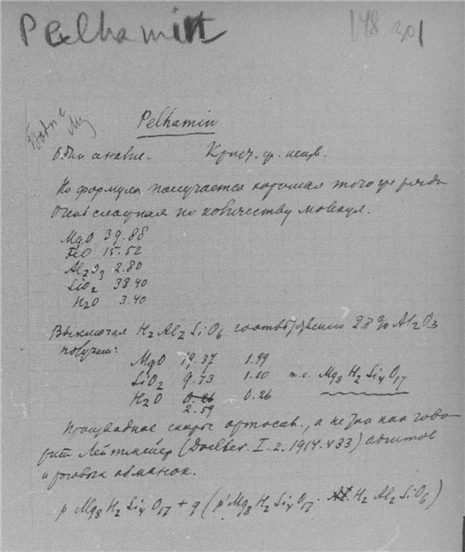 Pelhamin
148 301
Pelhamin
Один анализ. Крист. ф. неизв.
Но формула получается хорошая того же ряда
Очень сложная по количеству молекул.
MgO 39.88
FeO 15.52
Al2O3 2.80
SiO2 38.40
H2O 3.40
Выключая H2Al2SiO6 соответственно 2.8% Al2O3
получим:
MgO 19,37 1.99
SiO2 9.73 1.00 т.е. Mg8H2Si4O17
H2O 2.59 0.26
Производное скорее ортосил., а не так как гово
рит Лейтмейер (Doelter. I. 2. 1914. 433) авгитов
и роговых обманок.
p Mg8H2Si4O17 + q (p' Mg8H2Si4O17. H2Al2SiO6)